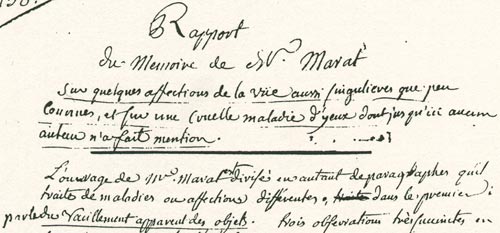 Rapport
du Memoire de Mr. Marat
Sur quelques affections de la vüe aussi singulieres que peu
connues, et sur une cruelle maladie d'yeux dont jusqu'ici aucun
auteur n'a fait mention.
L'ouvrage de Mr. Marat divisé en autant de paragraphes qu'il
traite de maladies ou affections différentes, traite dans le premier
parle du vacillement apparent des objets. trois observations très succinctes en